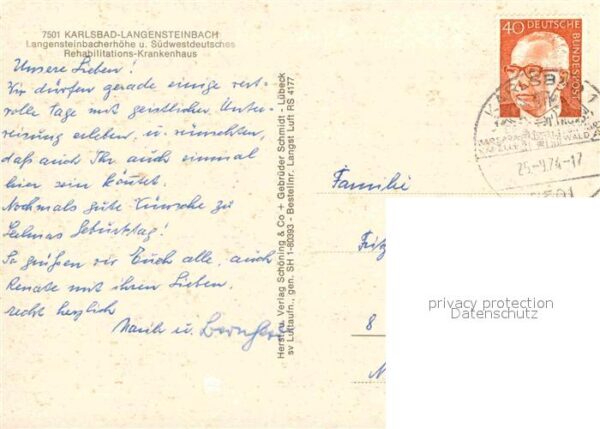 7501 KARLSBAD-LANGENSTEINBACH
Langensteinbacherhöhe u. Südwestdeutsches
Rehabilitations-Krankenhaus
Unsere Lieben!
Wir dürfen gerade einige wert-
volle Tage mit geistlicher Unter-
weisung erleben, u. wünschten,
daß auch Ihr auch einmal
hier sein könntet.
Nochmals gute Wünsche zu
Geburtstag!
So grüßen wir Euch alle, auch
Renate mit ihren Lieben,
recht herzlich
u.
Herst. u. Verlag Schöning & Co + Gebrüder Schmidt - Lübeck
sv Luftaufn., gen. SH 1-80393 - Bestellnr. Langst Luft RS 4177
40 DEUTSCHE BUNDESPOST
KARLSBAD 1
25.-9.74-17
7501
Familie
Fritz
8
privacy protection
Datenschutz